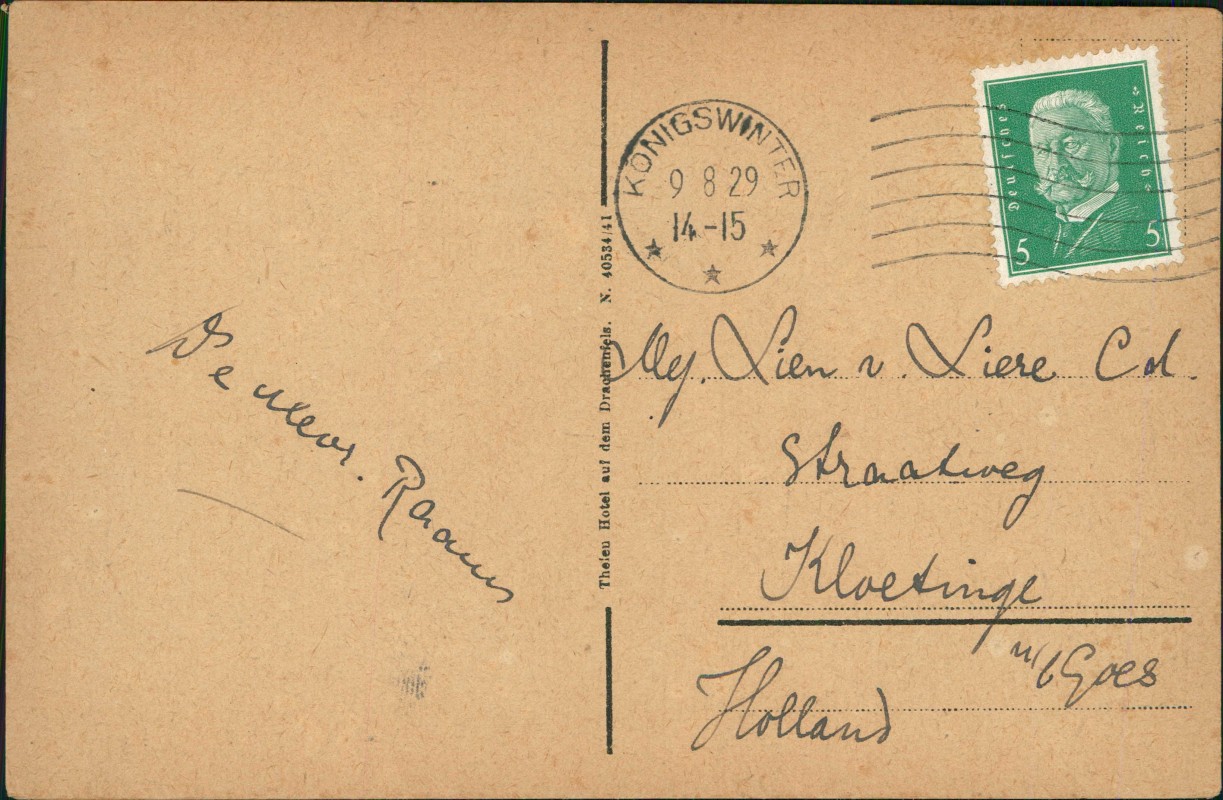 KÖNIGSWINTER
9 8 29
14-15
Deutsches Reich
5 5
Theisen Hotel auf dem Drachenfels. N. 40534/41
Mej. Lien v. Liere Cd.
Straatweg
Kloetinge
Holland
De